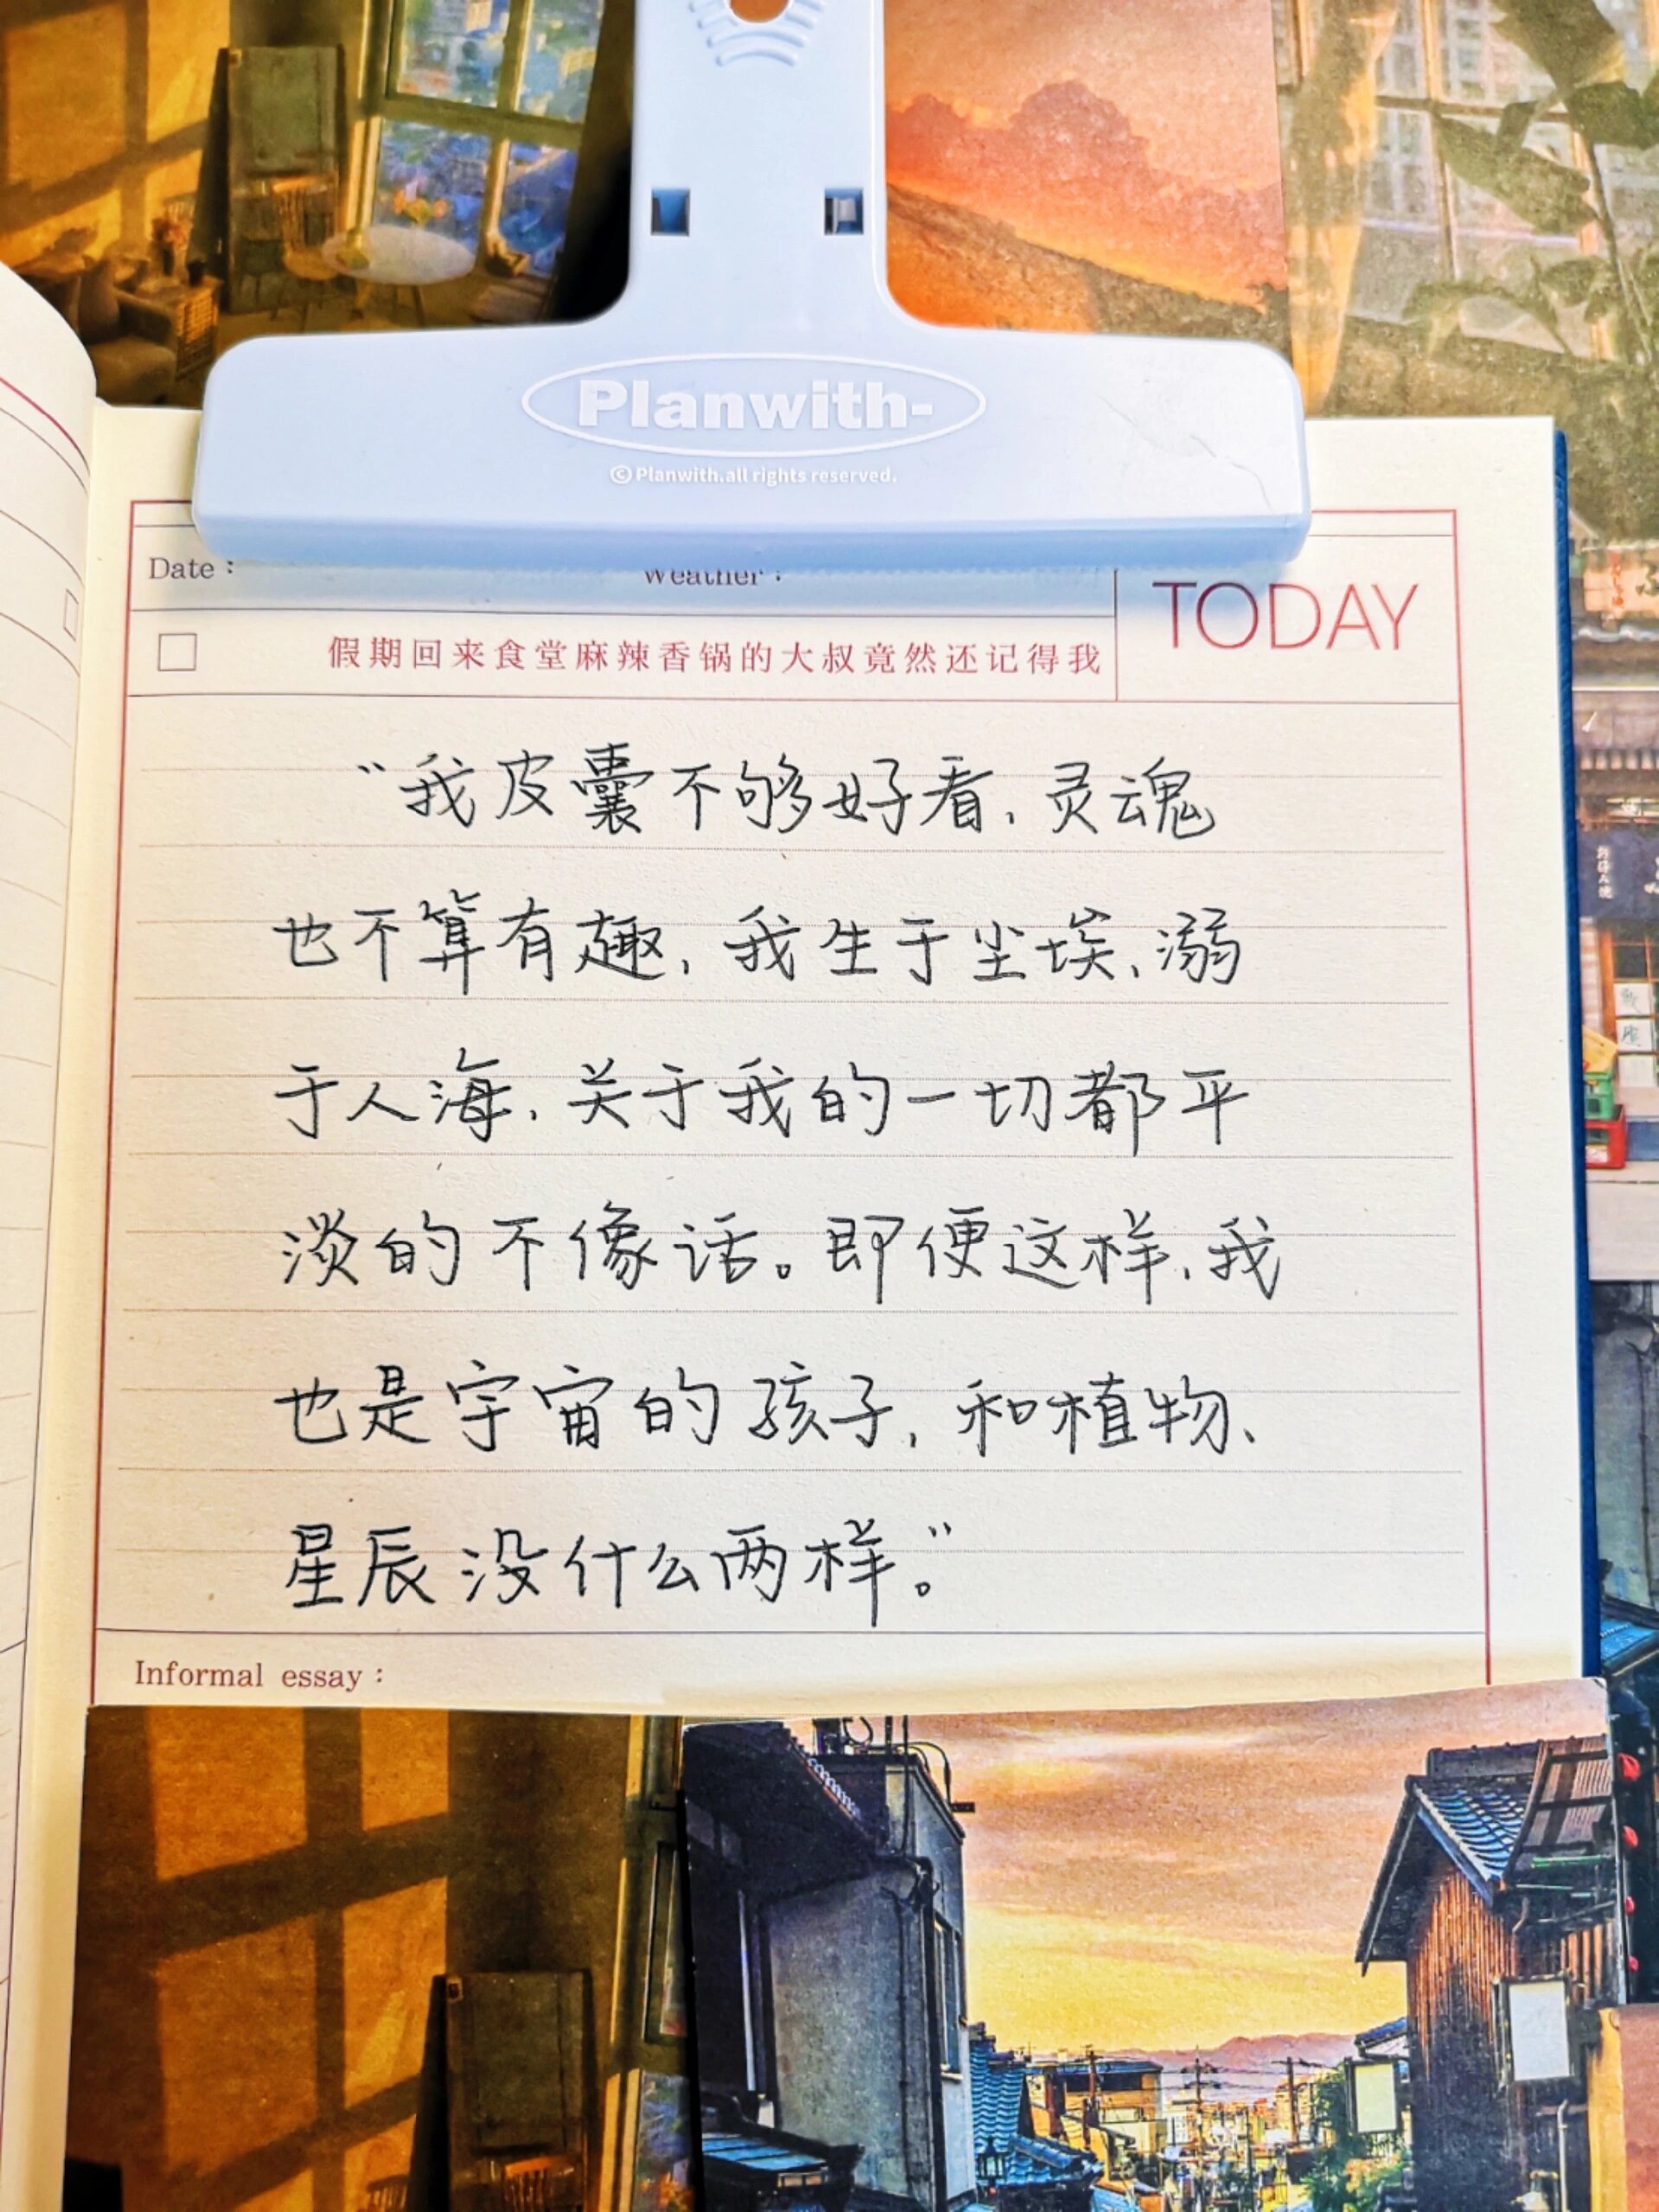 Planwith-
©Planwith.all rights reserved.
Date :
Weather :
TODAY
假期回来食堂麻辣香锅的大叔竟然还记得我
“我皮囊不够好看,灵魂
也不算有趣,我生于尘埃、溺
于人海,关于我的一切都平
淡的不像话。即便这样,我
也是宇宙的孩子,和植物、
星辰没什么两样。”
Informal essay :